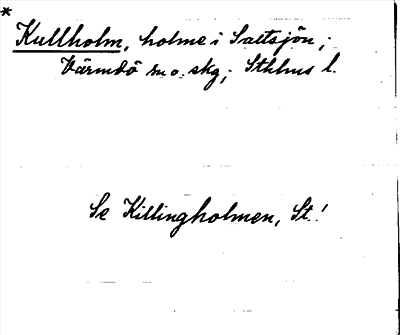 *
Kullholm, holme i Saltsjön;
Värmdö sn o. skg; Sthlms l.
Se Killingholmen, St!